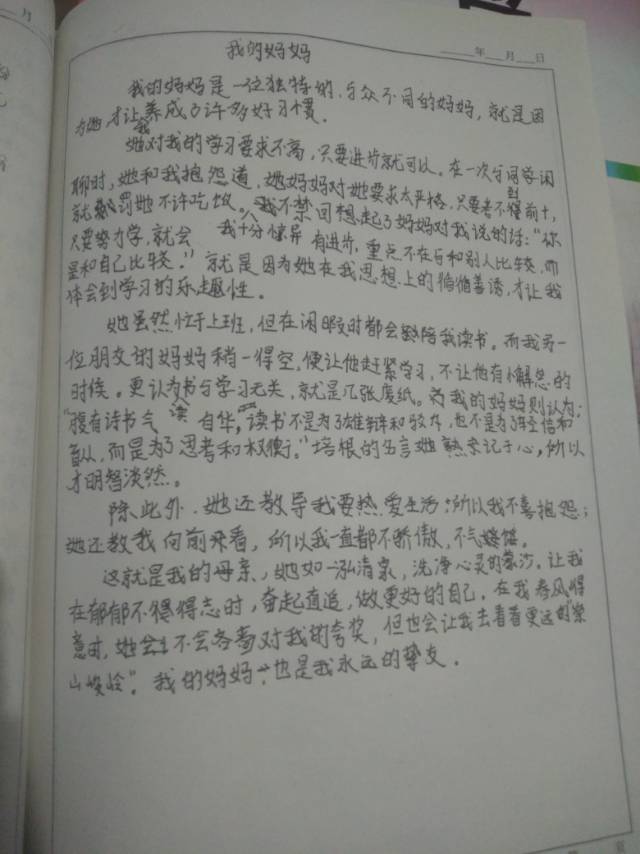 年 月 日
我的妈妈
我的妈妈是一位独特的、与众不同的妈妈，就是因
为她才让我养成了许多好习惯。
她对我的学习要求不高，只要进步就可以。在一次与同学闲
聊时，她和我抱怨道，她妈妈对她要求太严格，只要考不到前十，
就罚她不许吃饭。我不禁回想起了妈妈对我说的话："你
只要努力学，就会有进步，重点不在与和别人比较，而
是和自己比较。"就是因为她在我思想上的循循善诱，才让我
体会到学习的乐趣性。
她虽然忙于上班，但在闲暇时都会陪我读书。而我另一
位朋友的妈妈稍一得空，便让他赶紧学习，不让他有懈怠的
时候。更认为书与学习无关，就是几张废纸。而我的妈妈则认为：
"腹有诗书气自华。读书不是为了雄辩和驳斥，也不是为了轻信和
盲从，而是为了思考和权衡。"培根的名言她熟来记于心，所以
才明智淡然。
除此外，她还教导我要热爱生活，所以我不喜抱怨；
她还教我向前来看，所以我一直都不骄傲，不气馁。
这就是我的母亲，她如一泓清泉，洗净心灵的蒙沙。让我
在郁郁不得志时，奋起直追，做更好的自己。在我春风得
意时，她不会吝啬对我的夸奖，但也会让我去看看更远的"崇
山峻岭"。我的妈妈，也是我永远的挚友。